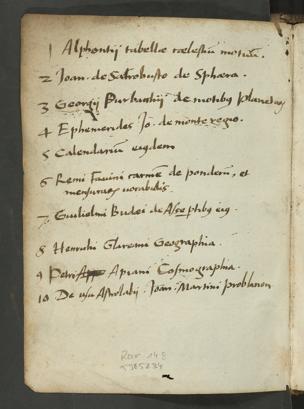 1 Alphontij tabellæ cælestiū motuū.
2 Joan. de Sacrobusto de Sphæra.
3 Georgij Purbachij de motibus planetaꝝ
4 Ephemerides Jo. de monte regio.
5 Calendarium eiusdem
6 Remi Favini carmē de ponderū, et
mensuraꝝ vocabulis.
7 Guilielmi Budæi de Asse ptibus eiꝰ.
8 Henrichi Glareani Geographia.
9 Petri Apiani Cosmographia.
10 De usu Astrolabij Joan: Martini problanon
Rar 148